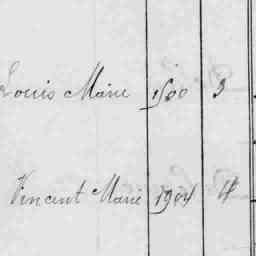 Louis Marie 1500 3
Vincent Marie 1904 4